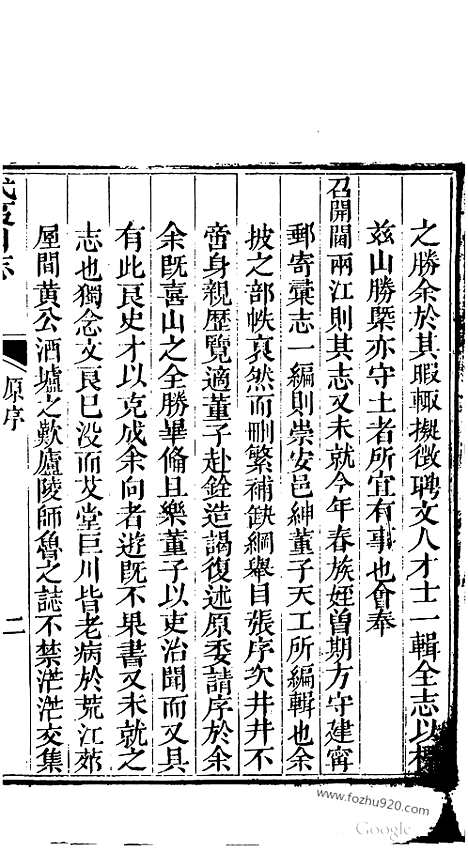 之勝余於其暇輙擬徵聘文人才士一輯全志以標
玆山勝槩亦守土者所宜有事也會奉
召開閫兩江則其志又未就今年春族姪曽期方守建寧
郵寄彚志一編則崇安邑紳董子天工所編輯也余
披之部帙裒然而刪繁補缺綱舉目張序次井井不
啻身親歴覽適董子赴銓造謁復述原委請序於余
余旣喜山之全勝畢備且樂董子以吏治聞而又具
有此良史才以克成余向者遊旣不果書又未就之
志也獨念文良巳没而艾堂巨川皆老病於荒江茮
屋間黄公酒壚之歎廬陵師魯之誌不禁茫茫交集
原序
二
www.fozhu920.com
Google